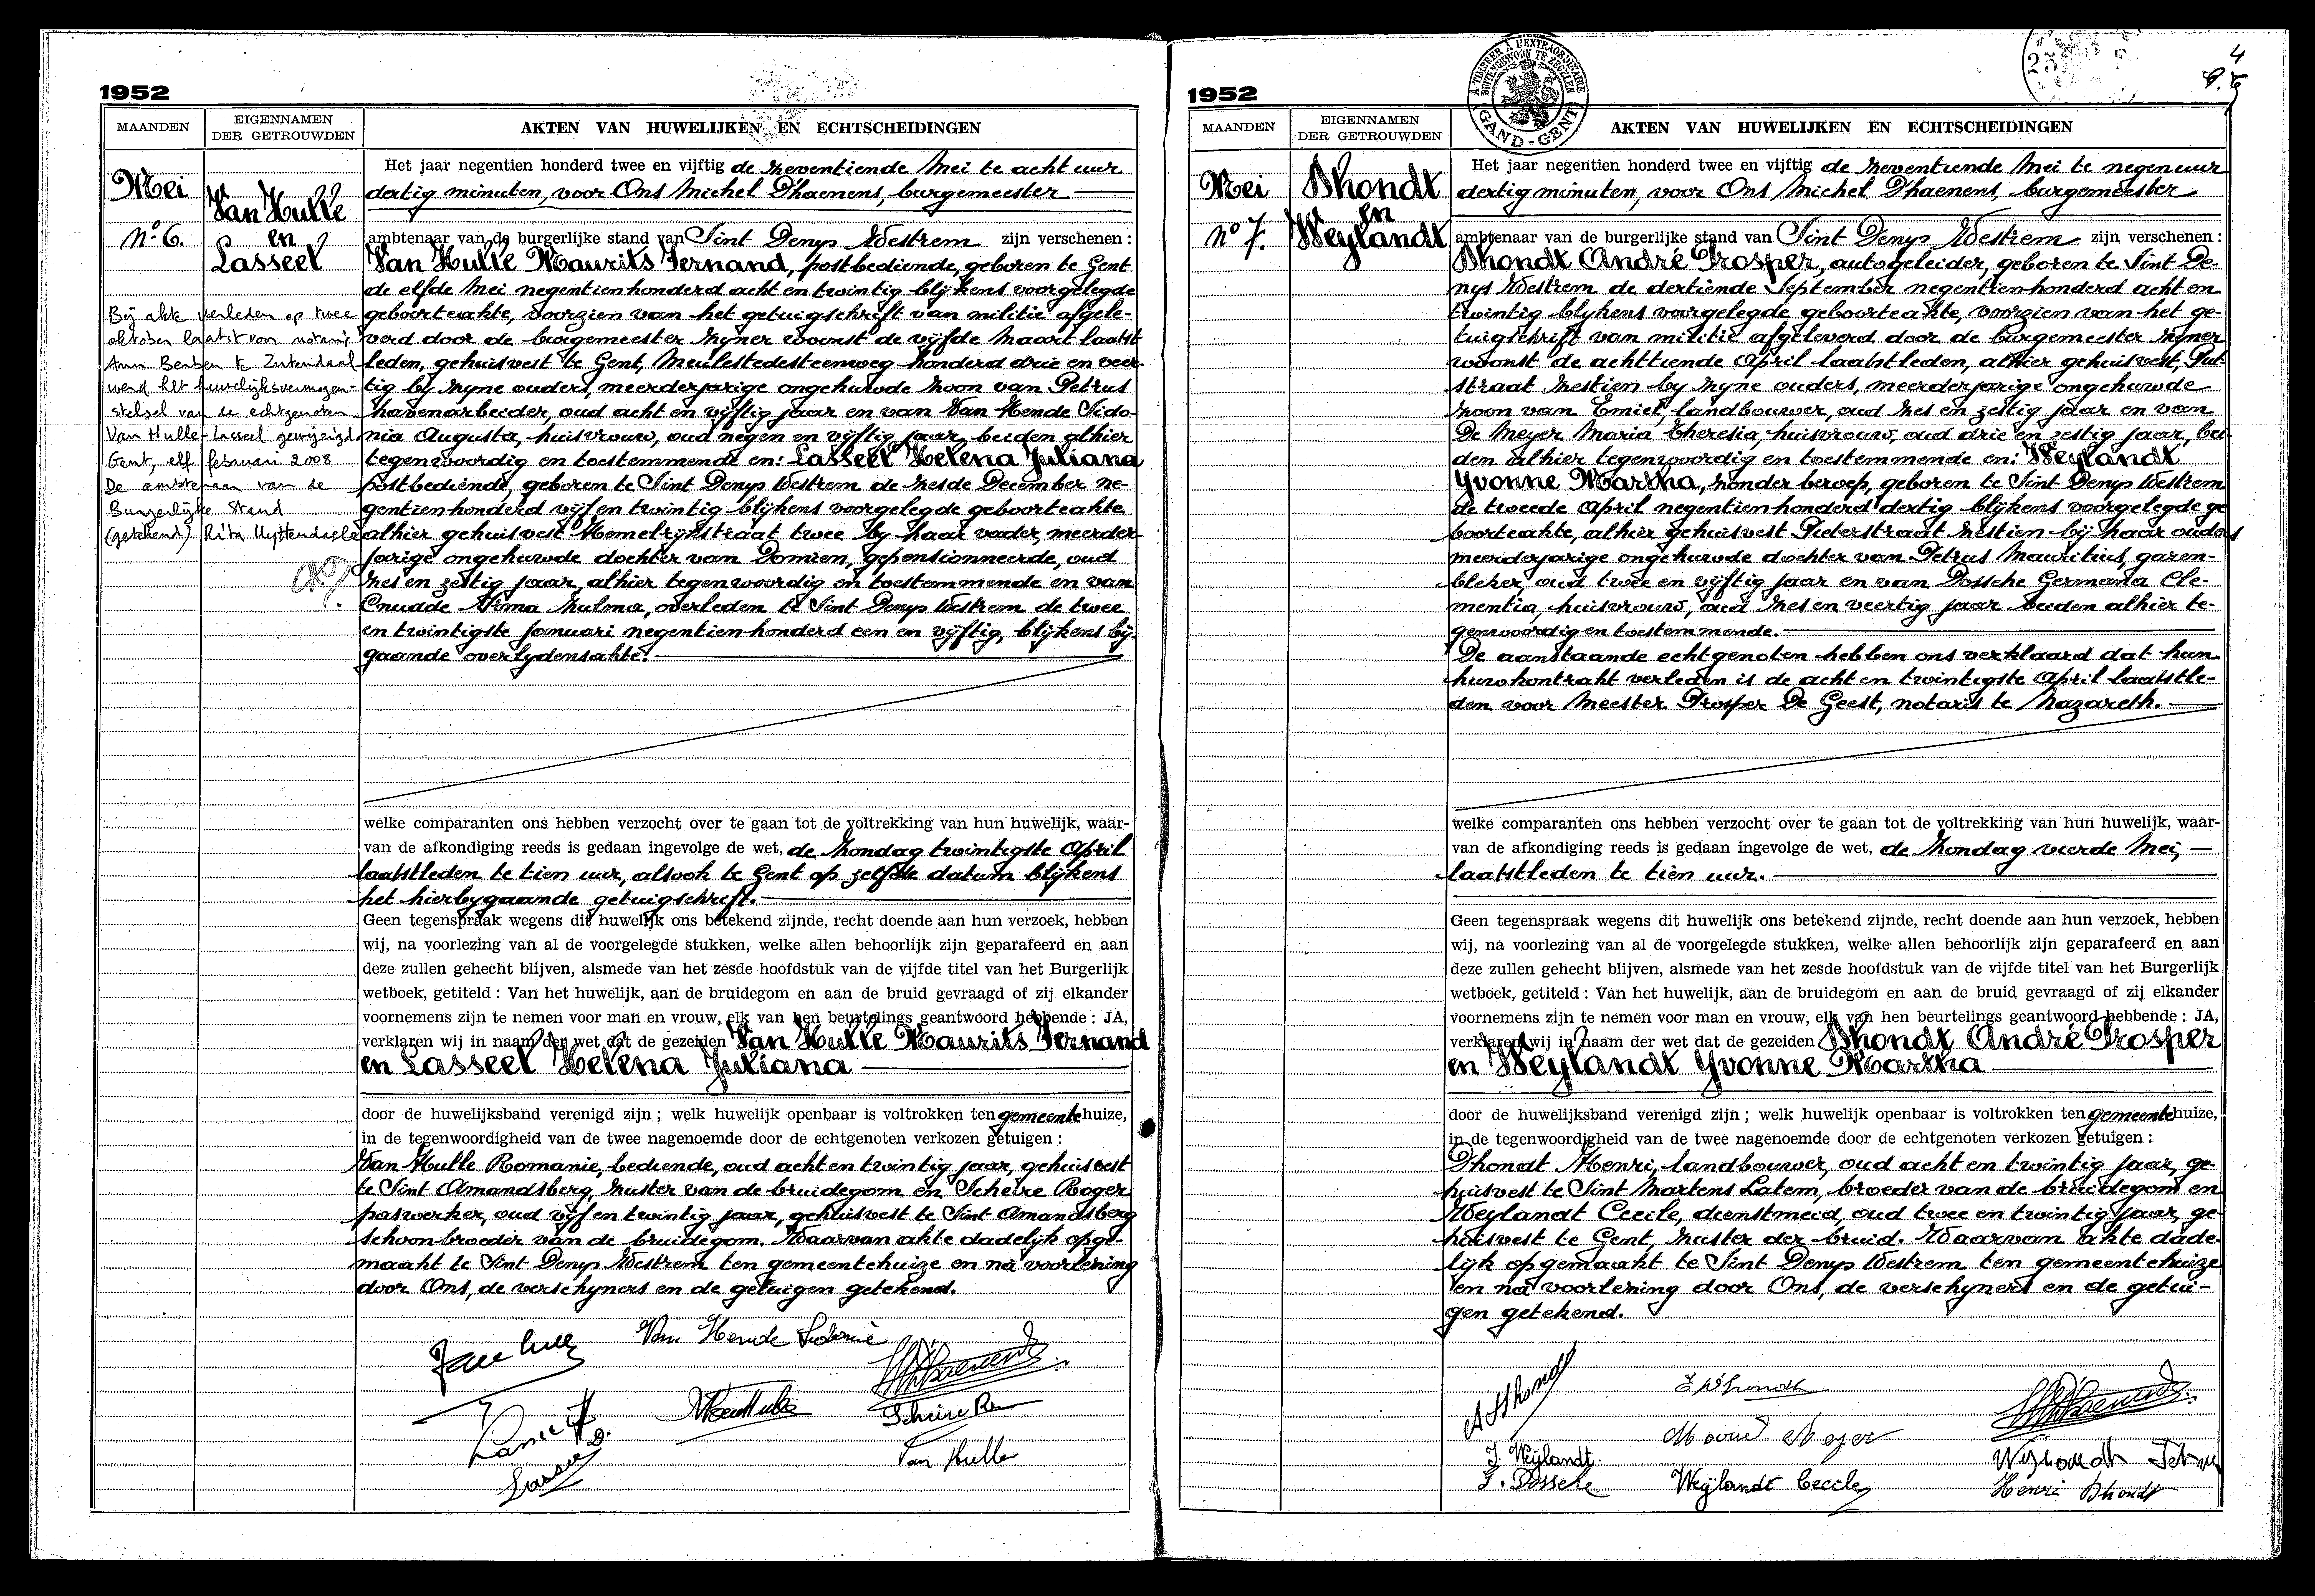 1952
MAANDEN
EIGENNAMEN
DER GETROUWDEN
AKTEN VAN HUWELIJKEN EN ECHTSCHEIDINGEN
Mei
Nº 6.
Van Hulle
en
Lasseel
Bij akte verleden op twee
oktober laatst van notaris
Ann Berben te Zutendaal
werd het huwelijksvermogen-
stelsel van de echtgenoten
Van Hulle - Lasseel gewijzigd
Gent, elf februari 2008
De ambtenaar van de
Burgerlijke Stand
(getekend) Rita Uyttendaele
Het jaar negentien honderd twee en vijftig de zeventiende Mei te acht uur
dertig minuten, voor Ons Michel D'haenens, burgemeester
ambtenaar van de burgerlijke stand van Sint Denys Westrem zijn verschenen :
Van Hulle Maurits Fernand, postbediende, geboren te Gent
de elfde Mei negentienhonderd acht en twintig blijkens voorgelegde
geboorteakte, voorzien van het getuigschrift van militie afgele-
verd door de burgemeester zijner woonst de vijfde Maart laatst
leden, gehuisvest te Gent, Meulestedesteenweg honderd drie en veer-
tig bij zijne ouders, meerderjarige ongehuwde zoon van Petrus
havenarbeider, oud acht en vijftig jaar en van Van Hende Sido-
nia Augusta, huisvrouw, oud negen en vijftig jaar, beiden alhier
tegenwoordig en toestemmende en: Lasseel Helena Juliana
postbediende, geboren te Sint Denys Westrem de zesde December ne-
gentienhonderd vijf en twintig blijkens voorgelegde geboorteakte
alhier gehuisvest Hemelrijkstraat twee bij haar vader, meerder-
jarige ongehuwde dochter van Domien, gepensionneerde, oud
zes en zestig jaar, alhier tegenwoordig en toestemmende en van
Cnudde Irma Zulma, overleden te Sint Denys Westrem de twee
en twintigste Januari negentienhonderd een en vijftig, blijkens bij-
gaande overlydensakte.
welke comparanten ons hebben verzocht over te gaan tot de voltrekking van hun huwelijk, waar-
van de afkondiging reeds is gedaan ingevolge de wet, de Zondag twintigste April
laatstleden te tien uur, alsook te Gent op zelfde datum blijkens
het hierbygaande getuigschrift.
Geen tegenspraak wegens dit huwelijk ons betekend zijnde, recht doende aan hun verzoek, hebben
wij, na voorlezing van al de voorgelegde stukken, welke allen behoorlijk zijn geparafeerd en aan
deze zullen gehecht blijven, alsmede van het zesde hoofdstuk van de vijfde titel van het Burgerlijk
wetboek, getiteld : Van het huwelijk, aan de bruidegom en aan de bruid gevraagd of zij elkander
voornemens zijn te nemen voor man en vrouw, elk van hen beurtelings geantwoord hebbende : JA,
verklaren wij in naam der wet dat de gezeiden Van Hulle Maurits Fernand
en Lasseel Helena Juliana
door de huwelijksband verenigd zijn ; welk huwelijk openbaar is voltrokken ten gemeentehuize,
in de tegenwoordigheid van de twee nagenoemde door de echtgenoten verkozen getuigen :
Van Hulle Romanie, bediende, oud acht en twintig jaar, gehuisvest
te Sint Amandsberg, zuster van de bruidegom en Scheire Roger
paswerker, oud vijf en twintig jaar, gehuisvest te Sint Amandsberg
schoonbroeder van de bruidegom. Waarvan akte dadelijk opge-
maakt te Sint Denys Westrem ten gemeentehuize en na voorlezing
door Ons, de verschyners en de getuigen getekend.
Van Hende Sidonie
Van Hulle
1952
A TIMBRER A L'EXTRAORDINAIRE
BUITENGEWOON TE ZEGELEN
GAND-GENT
25
4
MAANDEN
EIGENNAMEN
DER GETROUWDEN
AKTEN VAN HUWELIJKEN EN ECHTSCHEIDINGEN
Mei
Nº 7.
Dhondt
en
Weylandt
Het jaar negentien honderd twee en vijftig de zeventiende Mei te negen uur
dertig minuten, voor Ons Michel D'haenens, burgemeester
ambtenaar van de burgerlijke stand van Sint Denys Westrem zijn verschenen :
Dhondt André Prosper, autogeleider, geboren te Sint De-
nys Westrem de dertiende September negentienhonderd acht en
twintig blijkens voorgelegde geboorteakte, voorzien van het ge-
tuigschrift van militie afgeleverd door de burgemeester zijner
woonst de achttiende April laatstleden, alhier gehuisvest, Put-
straat zestien by zijne ouders, meerderjarige ongehuwde
zoon van Emiel, landbouwer, oud zes en zestig jaar en van
De Meyer Maria Theresia, huisvrouw, oud drie en zestig jaar, bei-
den alhier tegenwoordig en toestemmende en: Weylandt
Yvonne Martha, zonder beroep, geboren te Sint Denys Westrem
de tweede April negentienhonderd dertig blijkens voorgelegde ge
boorteakte, alhier gehuisvest Pieterstraat zestien bij haar ouders
meerderjarige ongehuwde dochter van Petrus Mauritius, garen-
bleker, oud twee en vijftig jaar en van Dossche Germana Cle-
mentia, huisvrouw, oud zes en veertig jaar beiden alhier te-
genwoordig en toestemmende.
De aanstaande echtgenoten hebben ons verklaard dat hun
huwkontrakt verleden is de acht en twintigste April laatstle-
den voor Meester Prosper De Geest, notaris te Nazareth.
welke comparanten ons hebben verzocht over te gaan tot de voltrekking van hun huwelijk, waar-
van de afkondiging reeds is gedaan ingevolge de wet, de Zondag vierde Mei,
laatstleden te tien uur.
Geen tegenspraak wegens dit huwelijk ons betekend zijnde, recht doende aan hun verzoek, hebben
wij, na voorlezing van al de voorgelegde stukken, welke allen behoorlijk zijn geparafeerd en aan
deze zullen gehecht blijven, alsmede van het zesde hoofdstuk van de vijfde titel van het Burgerlijk
wetboek, getiteld : Van het huwelijk, aan de bruidegom en aan de bruid gevraagd of zij elkander
voornemens zijn te nemen voor man en vrouw, elk van hen beurtelings geantwoord hebbende : JA,
verklaren wij in naam der wet dat de gezeiden Dhondt André Prosper
en Weylandt Yvonne Martha
door de huwelijksband verenigd zijn ; welk huwelijk openbaar is voltrokken ten gemeentehuize,
in de tegenwoordigheid van de twee nagenoemde door de echtgenoten verkozen getuigen :
Dhondt Henri, landbouwer, oud acht en twintig jaar, ge-
huisvest te Sint Martens Latem, broeder van de bruidegom en
Weylandt Cecile, dienstmeid, oud twee en twintig jaar, ge-
huisvest te Gent, zuster der bruid. Waarvan akte dade-
lijk opgemaakt te Sint Denys Westrem ten gemeentehuize
en na voorlezing door Ons, de verschyners en de getui-
gen getekend.
A Dhondt
E Dhondt
Y. Weijlandt.
G. Dossche
Weijlandt Cecile
Henri Dhondt